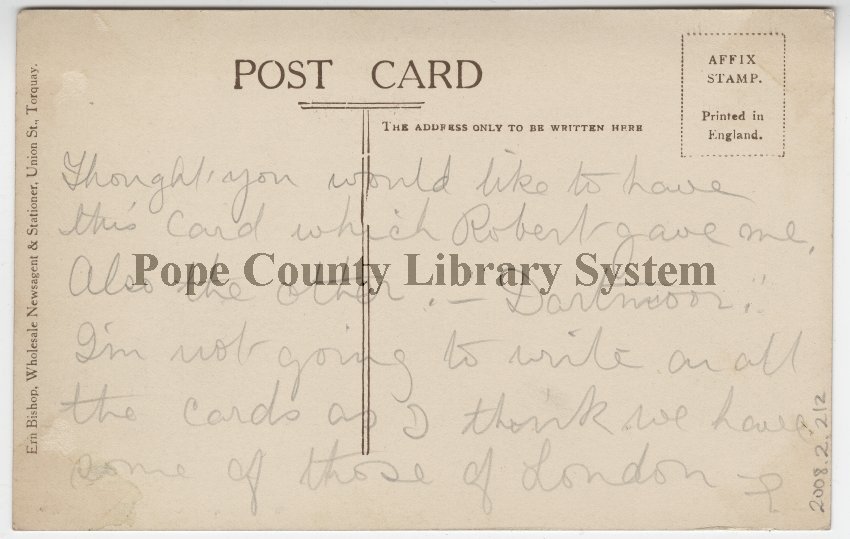 POST CARD
AFFIX
STAMP.
Printed in
England.
THE ADDRESS ONLY TO BE WRITTEN HERE
Ern Bishop, Wholesale Newsagent & Stationer, Union St., Torquay.
Thought you would like to have
this card which Robert gave me.
Also the other. — "Dartmoor".
I'm not going to write on all
the cards as I think we have
some of those of London —
Pope County Library System
2008.2.212